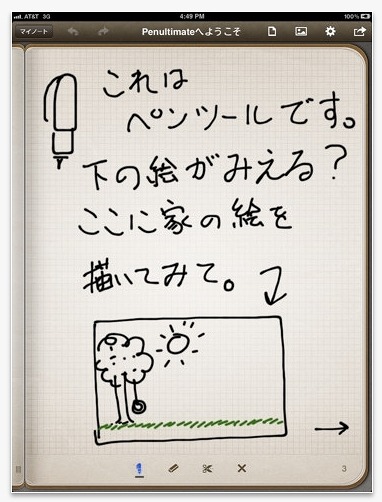 AT&T 3G 4:49 PM 100%
マイノート Penultimateへようこそ
これは
ペンツールです。
下の絵がみえる？
ここに家の絵を
描いてみて。
3